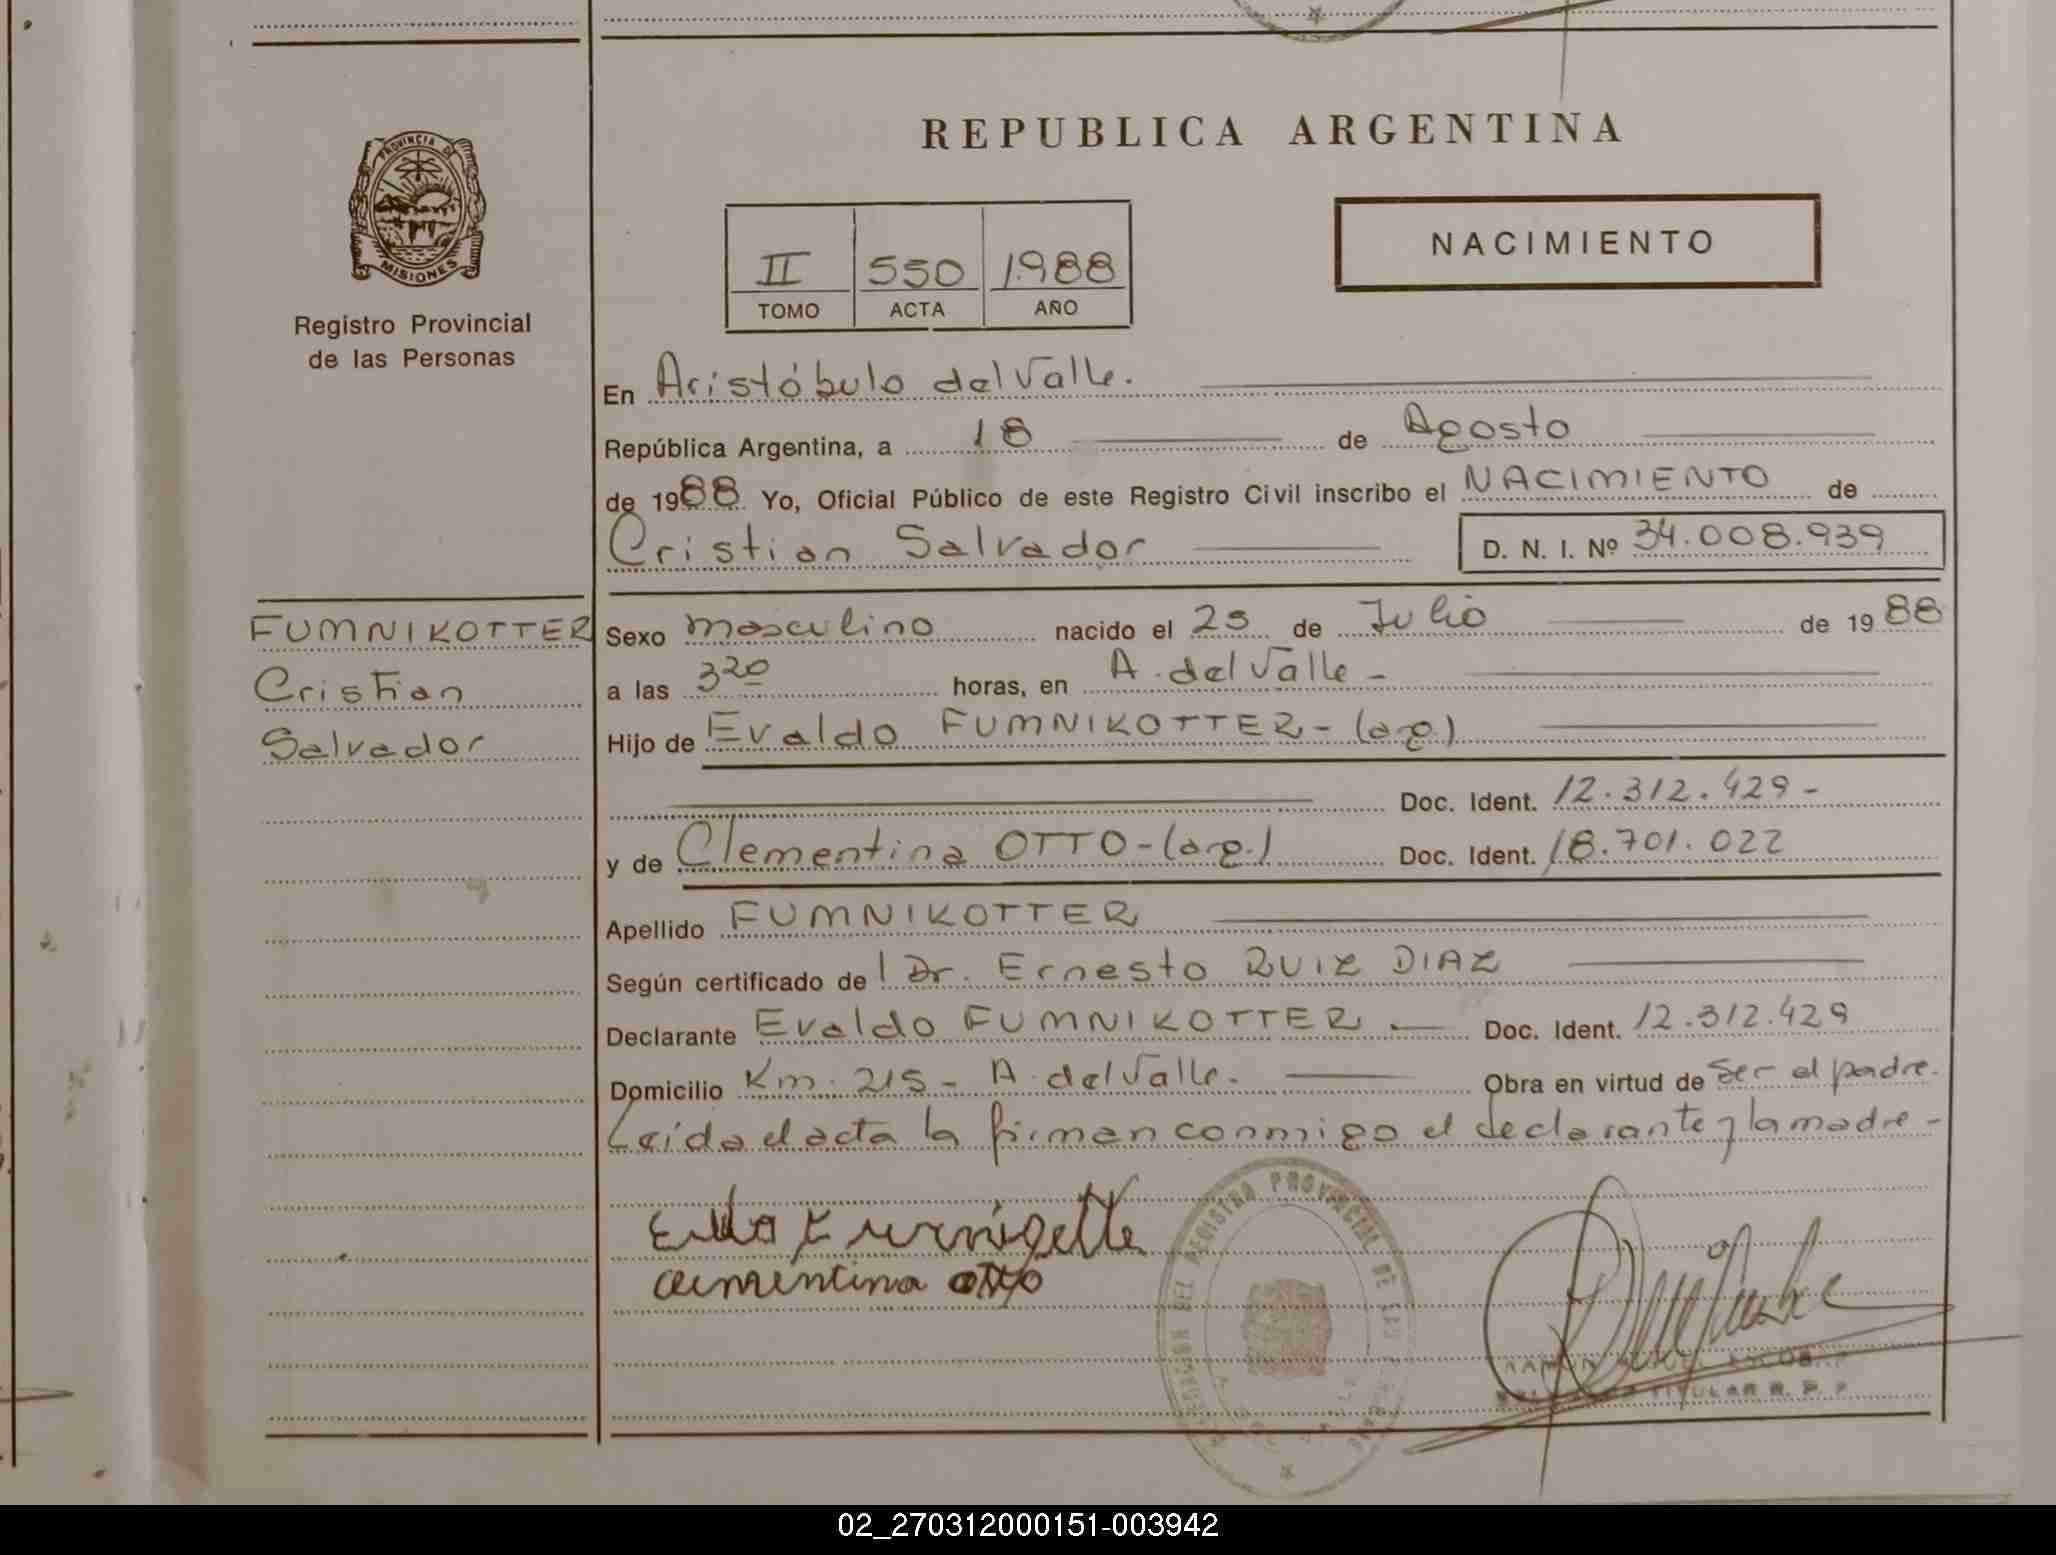 PROVINCIA DE
MISIONES
Registro Provincial
de las Personas
FUMNIKOTTER
Cristian
Salvador
REPUBLICA ARGENTINA
II 550 1988
TOMO ACTA AÑO
NACIMIENTO
En Aristóbulo del Valle.
República Argentina, a 18 de Agosto
de 1988 Yo, Oficial Público de este Registro Civil inscribo el NACIMIENTO de
Cristian Salvador D. N. I. Nº 34.008.939
Sexo masculino nacido el 25 de Julio de 1988
a las 3 20 horas, en A. del Valle -
Hijo de Evaldo FUMNIKOTTER - (arg.)
Doc. Ident. 12.312.429 -
y de Clementina OTTO - (arg.) Doc. Ident. 18.701.022
Apellido FUMNIKOTTER
Según certificado de l Dr. Ernesto RUIZ DIAZ
Declarante Evaldo FUMNIKOTTER. Doc. Ident. 12.312.429
Domicilio Km. 215 - A. del Valle. Obra en virtud de Ser el padre.
Leída el acta la firman conmigo el declarante y la madre -
clementina otto
DEL REGISTRO PROVINCIAL DE LAS
TITULAR R. P. P.
02_270312000151-003942